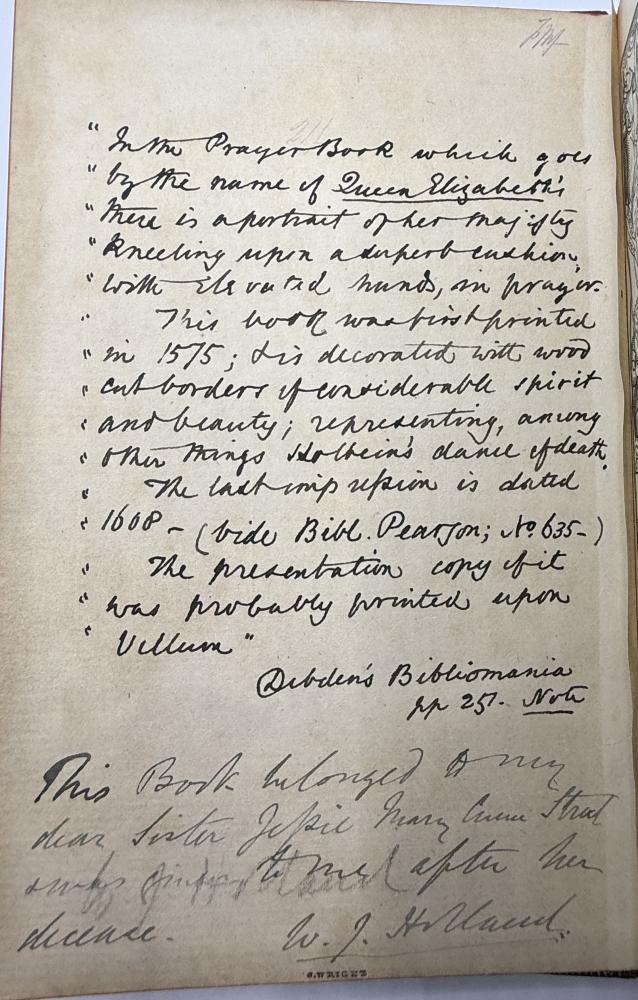 " In the Prayer Book which goes
" by the name of Queen Elizabeth's
" there is a portrait of her majesty
" Kneeling upon a superb cushion,
" with Elevated hands, in prayer.
" This book was first printed
" in 1575; & is decorated with wood
" cut borders of considerable spirit
" and beauty; representing, among
" other things Holbein's dance of death.
" The last impression is dated
" 1608 - (vide Bibl. Pearson; No. 635-)
" The presentation copy of it
" was probably printed upon
" Vellum "
Dibden's Bibliomania
pp 251. Note
This Book belonged to my
dear Sister Jessie Mary
given to me after her
decease. W. J. Holland.
S. WRIGHT